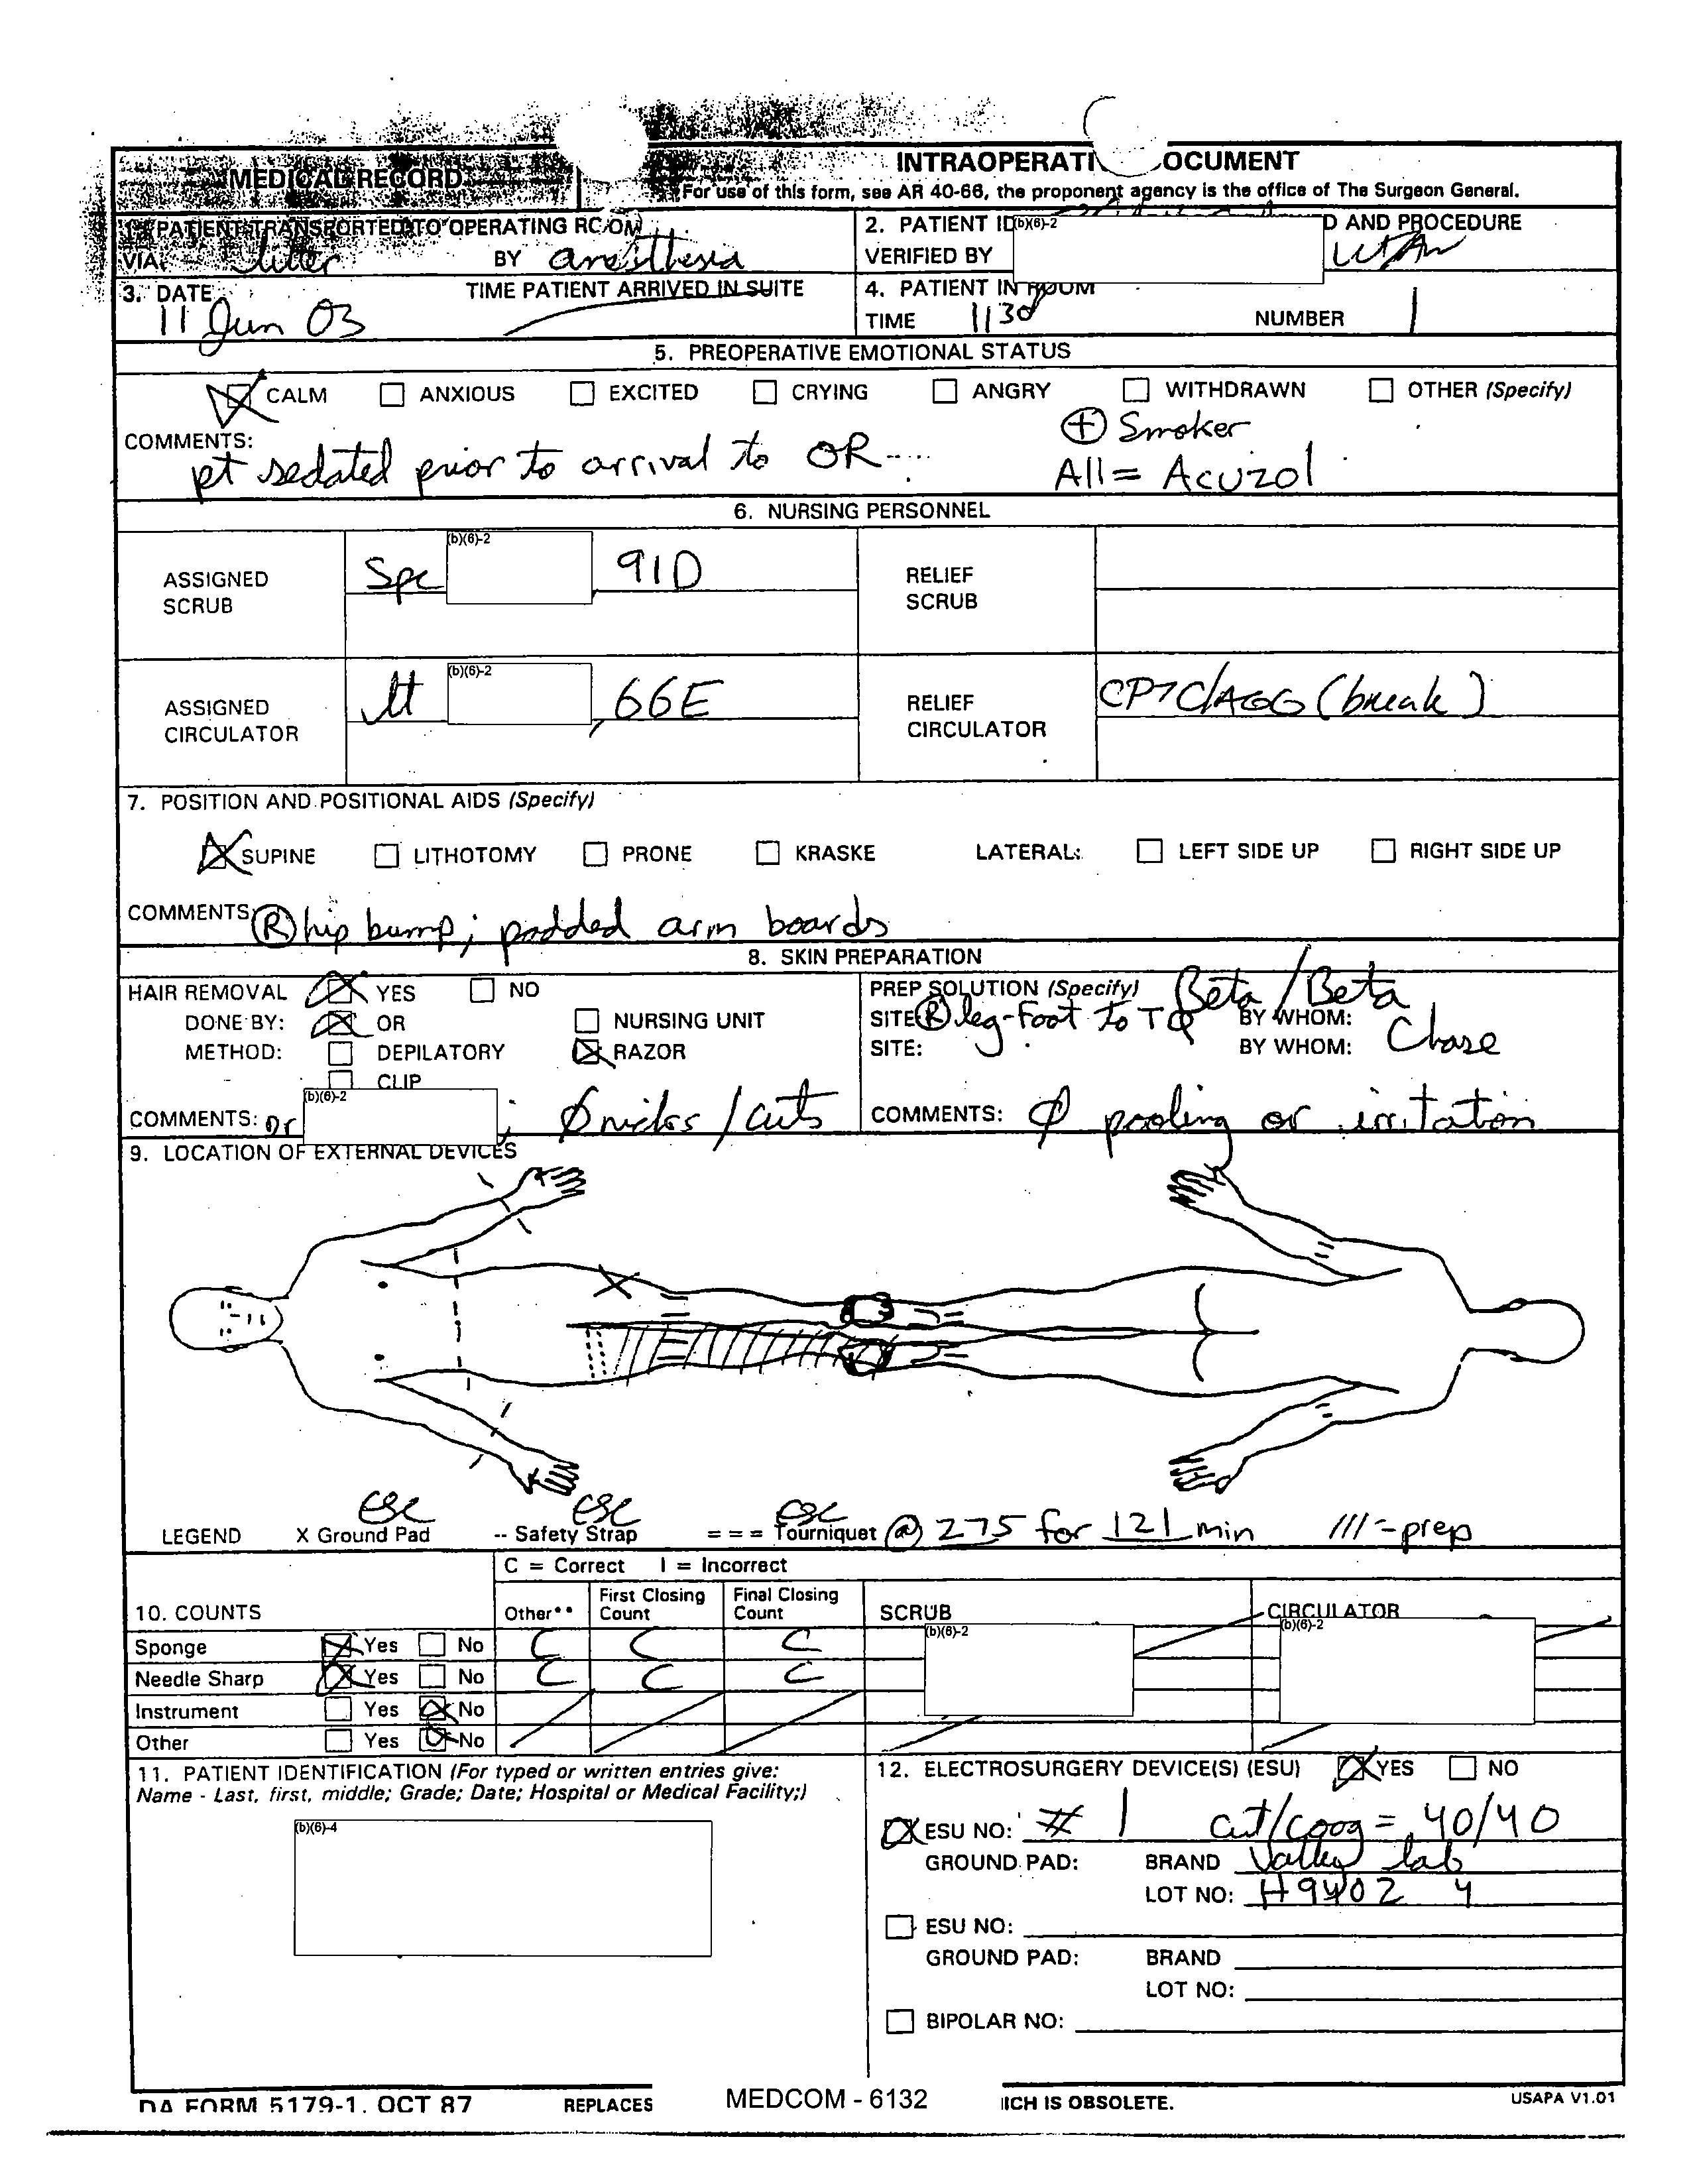 MEDICAL RECORD
INTRAOPERATI OCUMENT
For use of this form, see AR 40-66, the proponent agency is the office of The Surgeon General.
1. PATIENT TRANSPORTED TO OPERATING ROOM
VIA litter BY anesthesia
2. PATIENT ID (b)(6)-2 D AND PROCEDURE
VERIFIED BY
3. DATE TIME PATIENT ARRIVED IN SUITE
11 Jun 03
4. PATIENT IN ROOM
TIME 1130 NUMBER 1
5. PREOPERATIVE EMOTIONAL STATUS
CALM ANXIOUS EXCITED CRYING ANGRY WITHDRAWN OTHER (Specify)
COMMENTS:
pt sedated prior to arrival to OR
⊕ Smoker
All = Acuzol
6. NURSING PERSONNEL
ASSIGNED SCRUB Spc (b)(6)-2 91D
RELIEF SCRUB
ASSIGNED CIRCULATOR lt (b)(6)-2 66E
RELIEF CIRCULATOR (break)
7. POSITION AND POSITIONAL AIDS (Specify)
SUPINE LITHOTOMY PRONE KRASKE LATERAL: LEFT SIDE UP RIGHT SIDE UP
COMMENTS: Ⓡ hip bump; padded arm boards
8. SKIN PREPARATION
HAIR REMOVAL YES NO
DONE BY: OR NURSING UNIT
METHOD: DEPILATORY RAZOR
CLIP
COMMENTS: Dr (b)(6)-2 ; Ø nicks/cuts
PREP SOLUTION (Specify) Beta/Beta
SITE: Ⓡ leg-foot to TQ BY WHOM:
SITE: BY WHOM: Chase
COMMENTS: Ø pooling or irritation
9. LOCATION OF EXTERNAL DEVICES
esc esc esc
LEGEND X Ground Pad -- Safety Strap = = = Tourniquet @ 275 for 121 min /// - prep
C = Correct I = Incorrect
10. COUNTS Other** First Closing Count Final Closing Count SCRUB CIRCULATOR
Sponge Yes No C C C (b)(6)-2 (b)(6)-2
Needle Sharp Yes No C C C
Instrument Yes No
Other Yes No
11. PATIENT IDENTIFICATION (For typed or written entries give:
Name - Last, first, middle; Grade; Date; Hospital or Medical Facility;)
(b)(6)-4
12. ELECTROSURGERY DEVICE(S) (ESU) YES NO
ESU NO: # 1 cut/coag = 40/40
GROUND PAD: BRAND Valley lab
LOT NO: H9402 4
ESU NO:
GROUND PAD: BRAND
LOT NO:
BIPOLAR NO:
DA FORM 5179-1, OCT 87 REPLACES MEDCOM - 6132 ICH IS OBSOLETE. USAPA V1.01